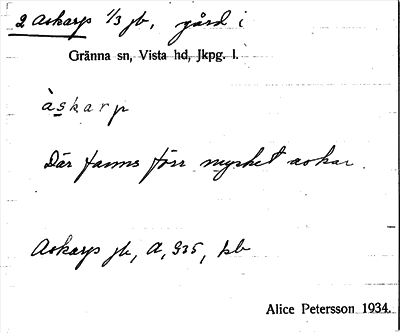 2 Askarp 1/3 jb, gård i
Gränna sn, Vista hd, Jkpg. l.
àskarp
Där fanns förr mycket askar.
Askarps jb, A, 935, kb
Alice Petersson 1934.